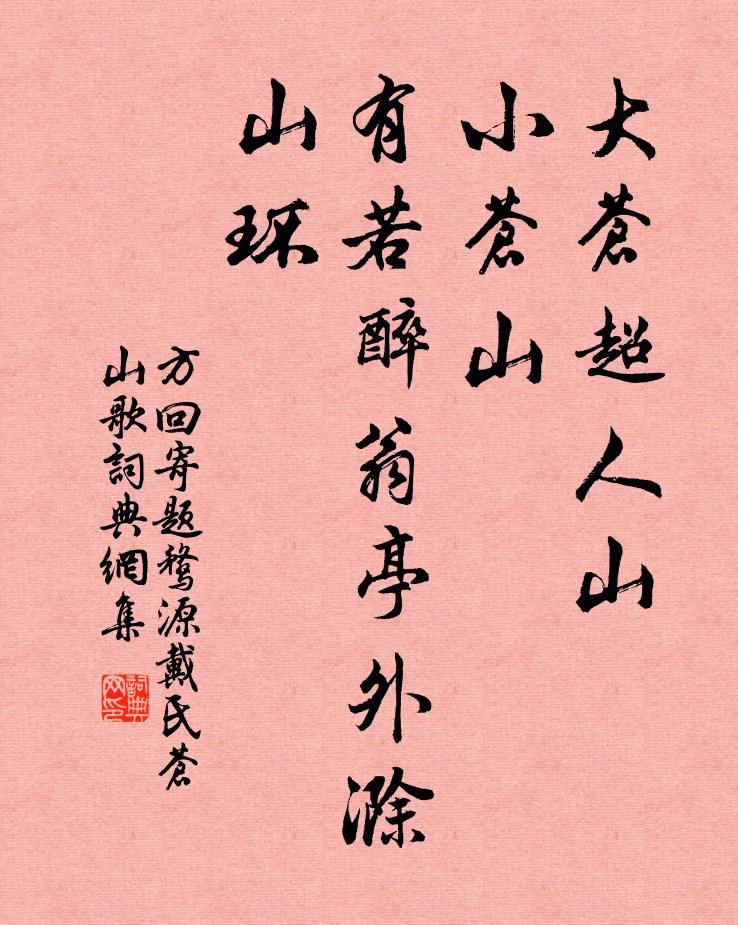 大蒼超人山
小蒼山
有若醉翁亭外滁
山环
方回寄題婺源戴氏蒼
山歌詞典網集
詞典
网印